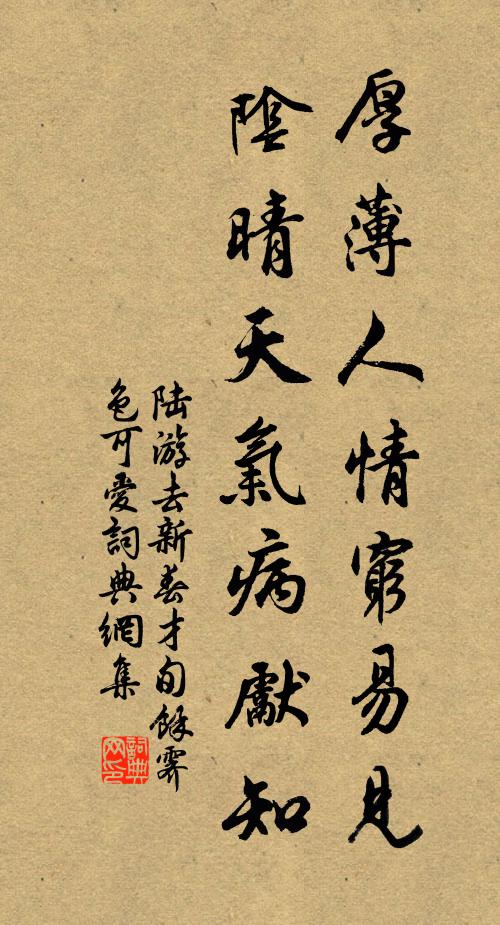 厚薄人情窮易見
陰晴天氣病獻知
陆游去新春才旬餘霽
色可愛詞典網集
詞典
网印